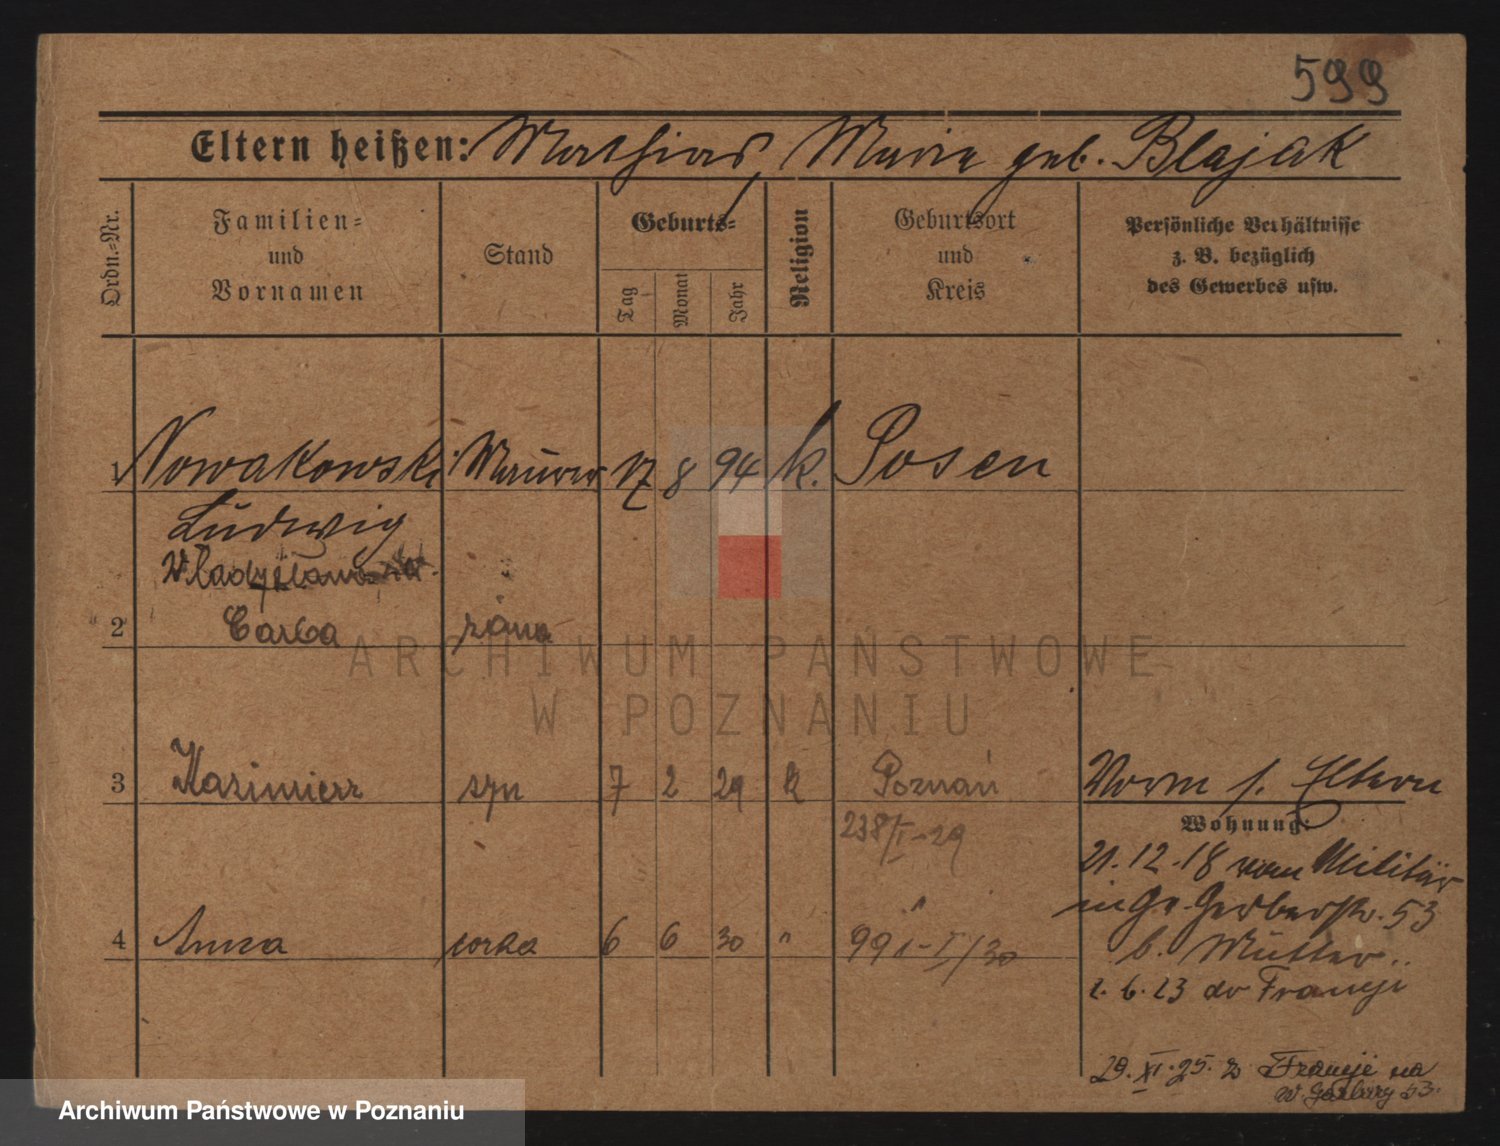 599
Eltern heißen: Mathias, Marie geb. Blajak
Ordn.-Nr.
Familien-
und
Vornamen
Stand
Geburts-
Tag
Monat
Jahr
Religion
Geburtsort
und
Kreis
Persönliche Verhältnisse
z. B. bezüglich
des Gewerbes usw.
1 Nowakowski Maurer 17 8 94 k. Posen
Ludwig
Władysława
2 Carba żona
3 Kazimierz syn 7 2 29 k Poznań Vorm f. Eltern
238/I-29
Wohnung:
21.12.18 vom Militär
in Gr. Gerberstr. 53
4 Anna corka 6 6 30 " 991-I/30
b. Mutter
2.6.23 do Francji
29.XI.25. z Francji na
W. Garbary 53.
ARCHIWUM PAŃSTWOWE
W POZNANIU
Archiwum Państwowe w Poznaniu